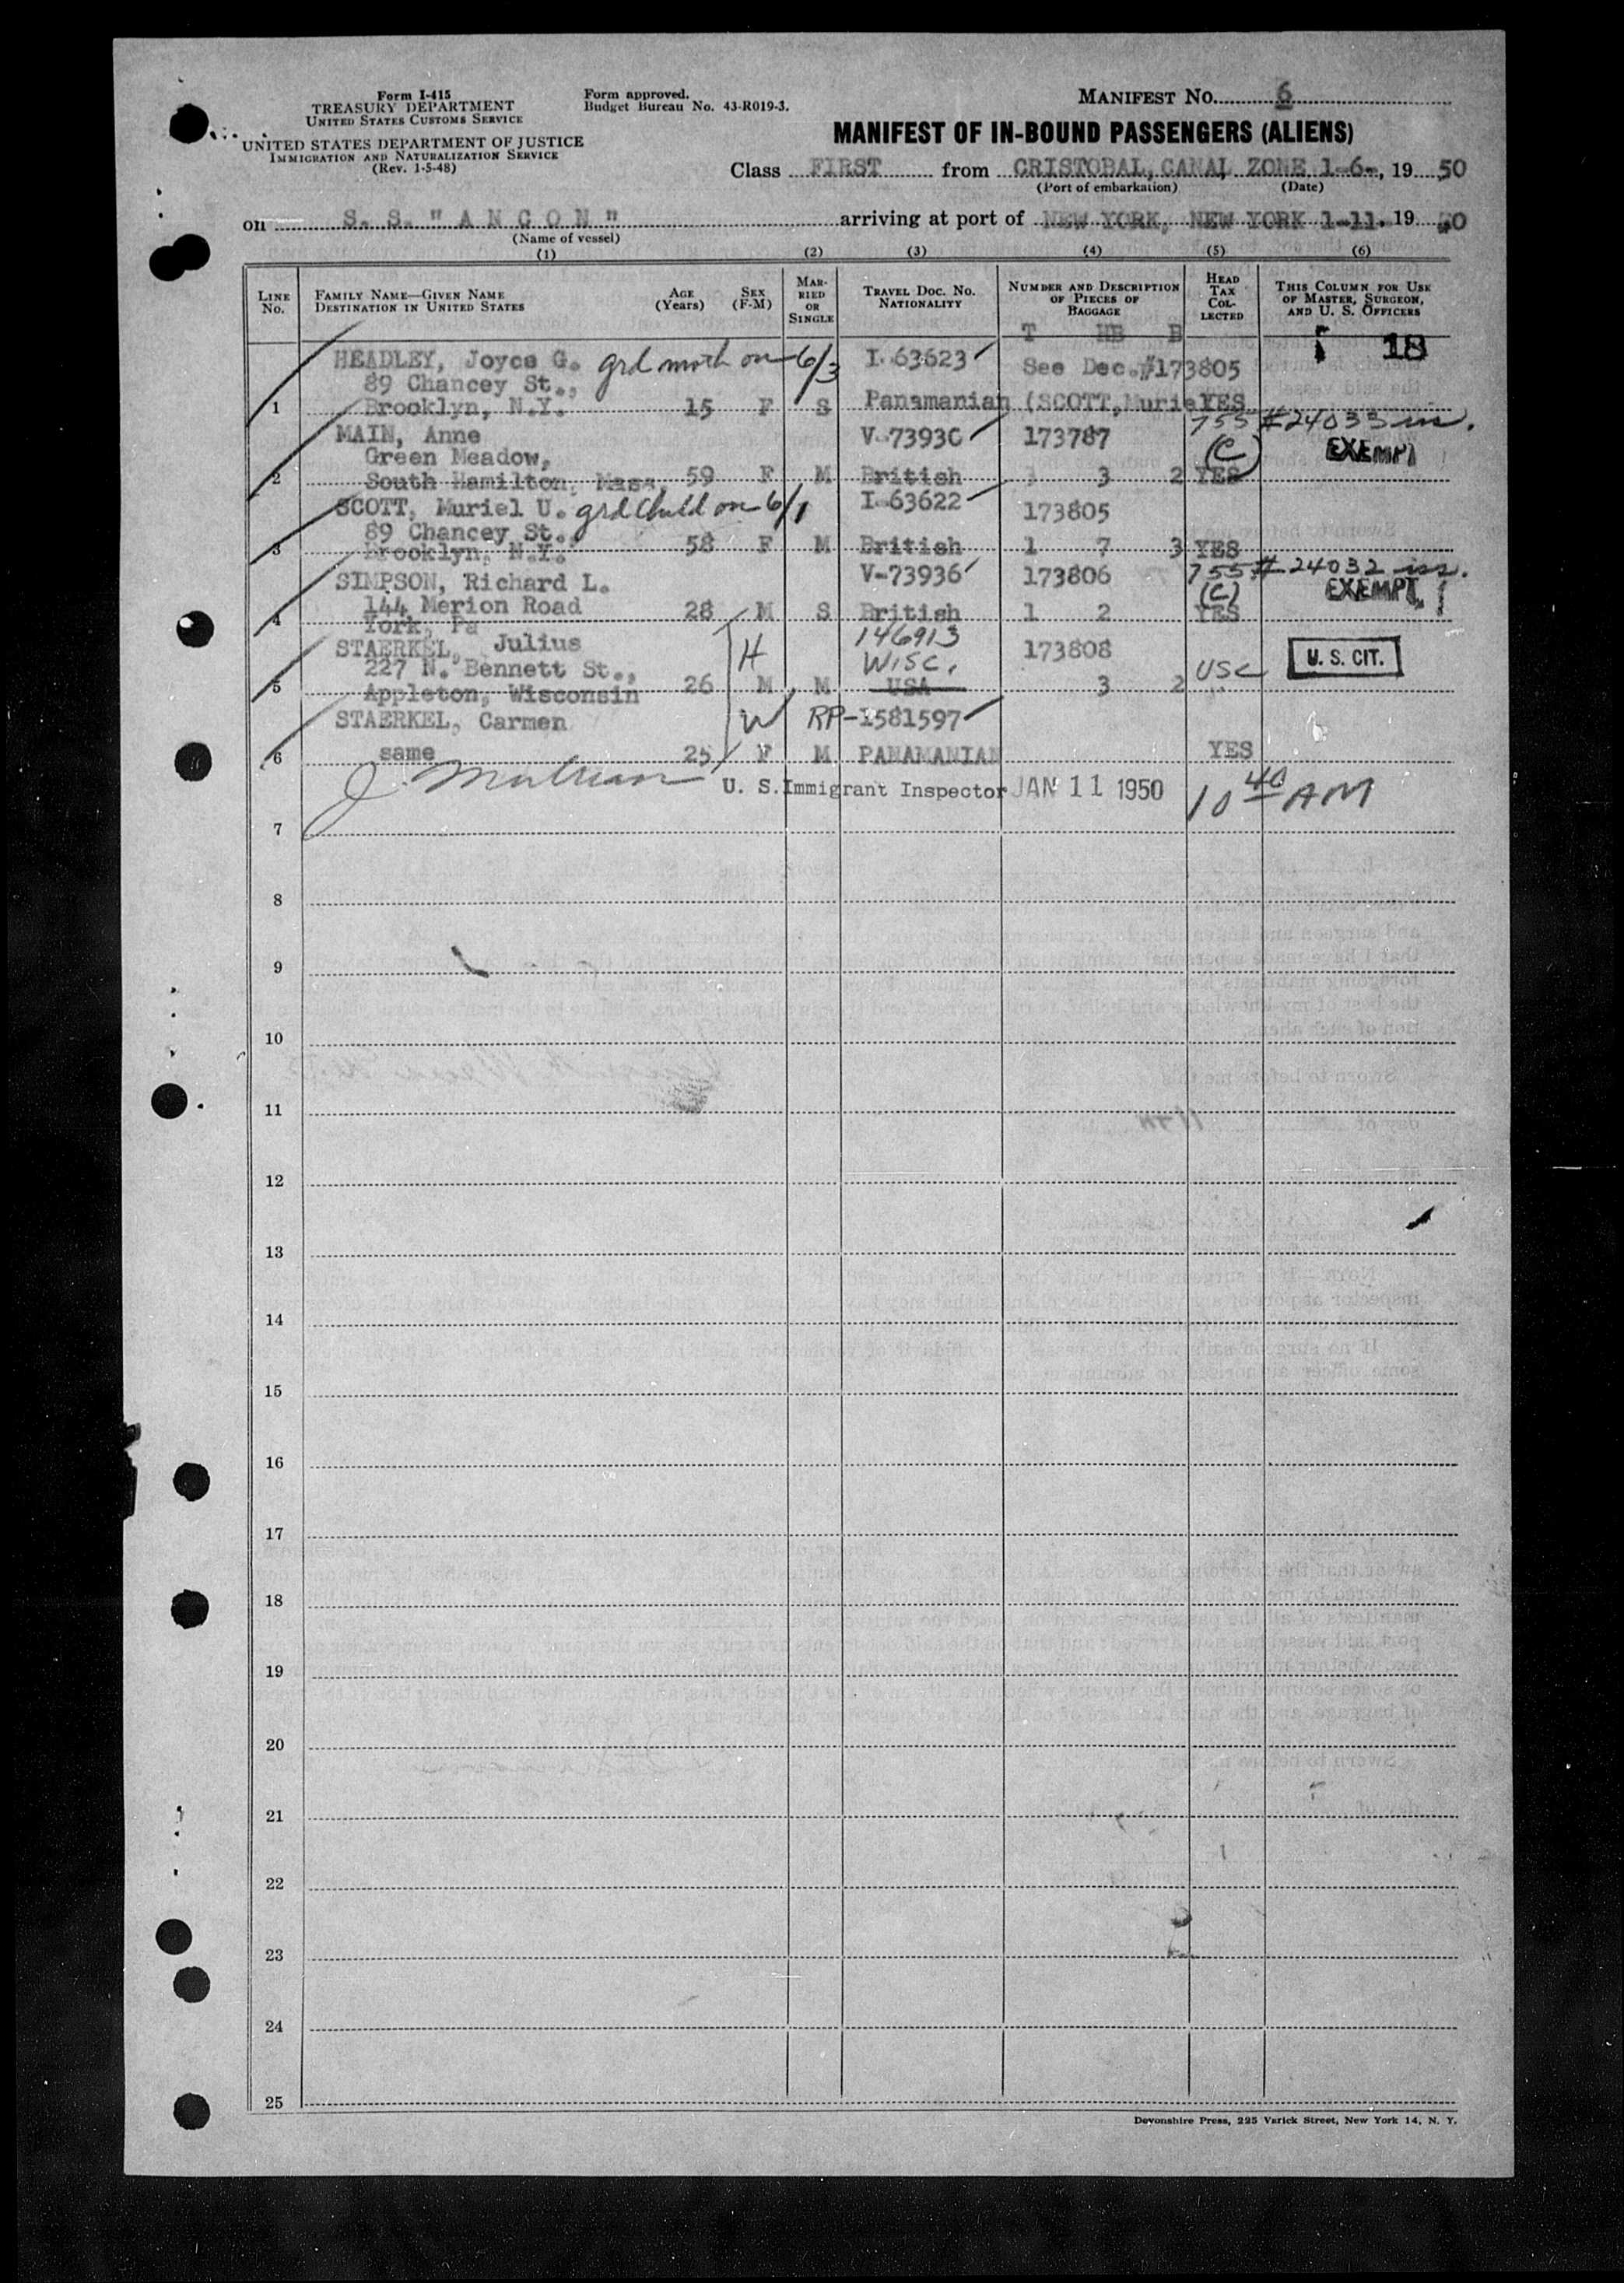 Form I-415
TREASURY DEPARTMENT
UNITED STATES CUSTOMS SERVICE
UNITED STATES DEPARTMENT OF JUSTICE
IMMIGRATION AND NATURALIZATION SERVICE
(Rev. 1-5-48)
Form approved.
Budget Bureau No. 43-R019-3.
MANIFEST No. 6
MANIFEST OF IN-BOUND PASSENGERS (ALIENS)
Class FIRST from CRISTOBAL, CANAL ZONE 1-6-, 19 50
(Port of embarkation) (Date)
on S. S. "ANCON" arriving at port of NEW YORK, NEW YORK 1-11. 19 50
(Name of vessel)
(1) (2) (3) (4) (5) (6)
LINE No. FAMILY NAME—GIVEN NAME DESTINATION IN UNITED STATES AGE (Years) SEX (F-M) MARRIED OR SINGLE TRAVEL DOC. No. NATIONALITY NUMBER AND DESCRIPTION OF PIECES OF BAGGAGE HEAD TAX COLLECTED THIS COLUMN FOR USE OF MASTER, SURGEON, AND U. S. OFFICERS
T HB B
18
HEADLEY, Joyce G. grd moth on 6/3 I-63623 See Dec.#173805
89 Chancey St.,
1 Brooklyn, N.Y. 15 F S Panamanian (SCOTT, Murie YES
MAIN, Anne V-73930 173787 755 #24033 iss.
Green Meadow, (C) EXEMPT
2 South Hamilton, Mass. 59 F M British 3 2 YES
SCOTT, Muriel U. grd child on 6/1 I-63622 173805
89 Chancey St.,
3 Brooklyn, N.Y. 58 F M British 1 7 3 YES
SIMPSON, Richard L. V-73936 173806 755 # 24032 iss.
144 Merion Road (C) EXEMPT
4 York, Pa 28 M S British 1 2 YES
STAERKEL, Julius H 146913 173808
227 N. Bennett St., WISC. USC U. S. CIT.
5 Appleton, Wisconsin 26 M M USA 3 2
STAERKEL, Carmen W RP-1581597
6 same 25 F M PANAMANIAN YES
U. S. Immigrant Inspector JAN 11 1950 10 40 AM
7
8
9
10
11
12
13
14
15
16
17
18
19
20
21
22
23
24
25
Devonshire Press, 225 Varick Street, New York 14, N. Y.